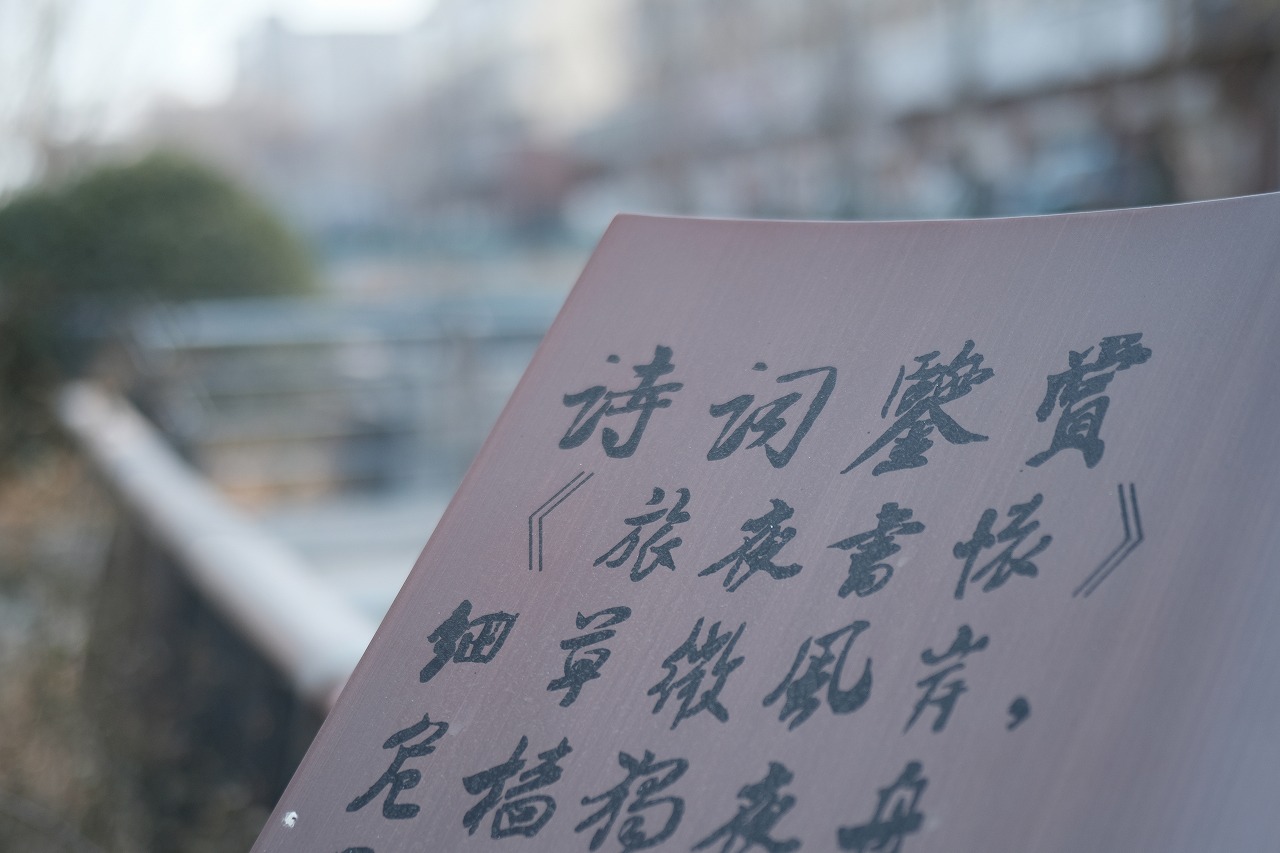 诗词鑒賞
《旅夜書懷》
细草微風岸，
危檣獨夜舟